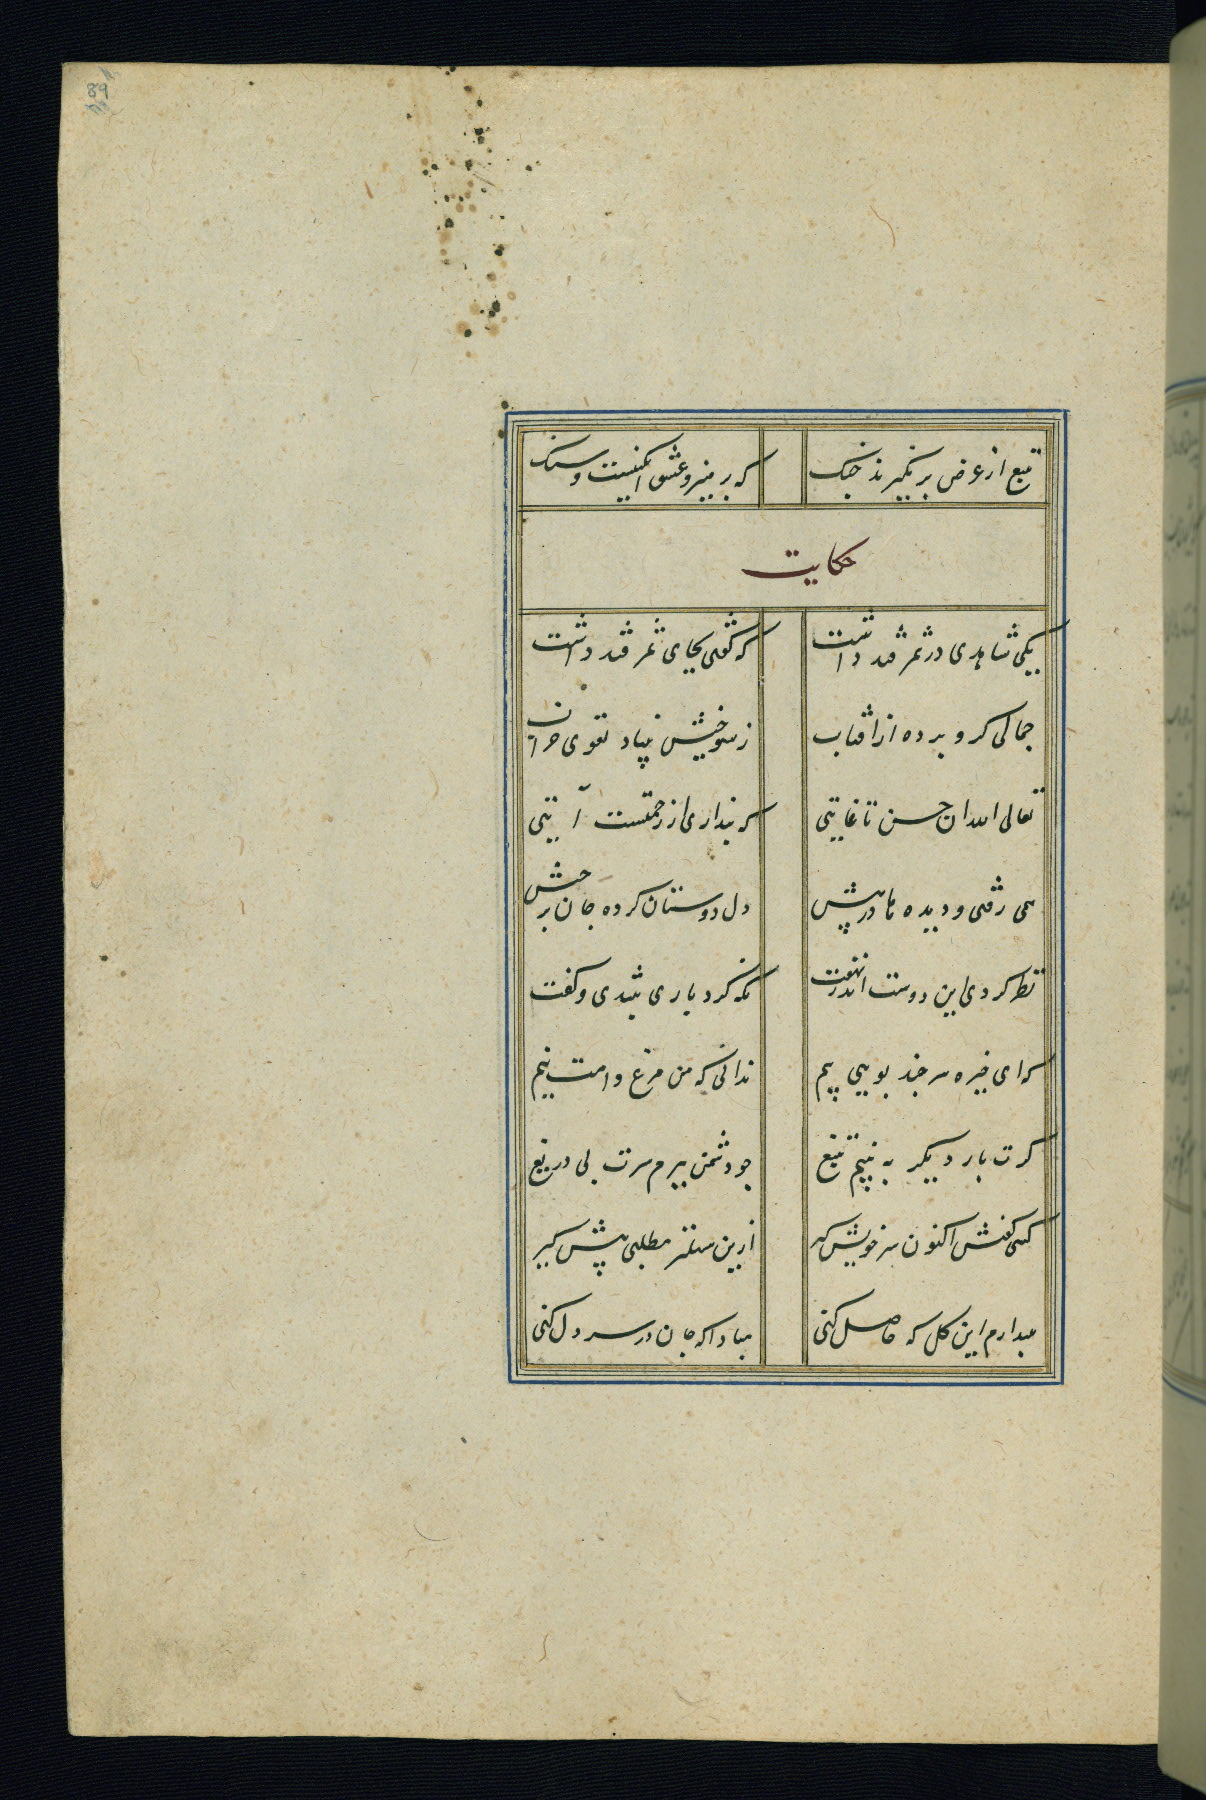 89
تیغ از غرض برنگیرند چنک که پرهیز و عشق آبکینست و سنک
حکایت
یکی شاهدی در سمرقند داشت که گفتی بجای سمر قند داشت
جمالی کرو برده از افتاب ز شوخیش بنیاد تقوی خراب
تعالی الله از حسن تا غایتی که پنداری از رحمتست آیتی
همی رفتی و دیده ها در پیش دل دوستان کرده جان برخیش
نظر کردی این دوست اندر نهفت نکه کرد باری بتندی و کفت
که ای خیره سر چند پویی پیم ندانی که من مرغ دامت نیم
کرت بار دیکر به بینم بتیغ چو دشمن ببرم سرت بی دریغ
کسی کفتش اکنون سر خویش کیر ازین سهلتر مطلبی پیش کیر
نپندارم این کل که حاصل کنی مبادا که جان در سر دل کنی